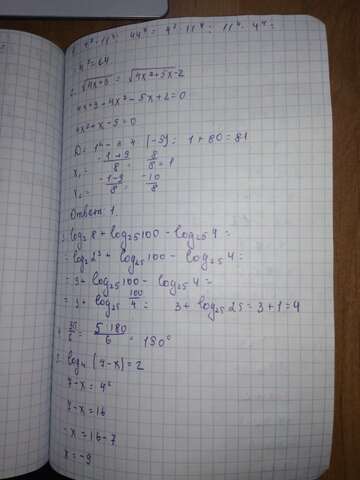 4³ = 64
2. √4x+3 = √4x²+5x-2
4x+3+4x²-5x+2=0
4x²+x-5=0
D = 1² - 4·4·(-5) = 1+80=81
x₁ = (-1+9)/8 = 8/8 = 1
x₂ = (-1-9)/8 = -10/8
Ответ 1.
log₂8 + log₂₅100 - log₂₅4 =
= log₂2³ + log₂₅100 - log₂₅4 =
= 3 + log₂₅100 - log₂₅4 =
= 3 + log₂₅ 100/4 = 3 + log₂₅25 = 3+1=4
5 180/6 = 150°
log₄(7-x)=2
7-x = 4²
7-x = 16
-x = 16-7
x = -9